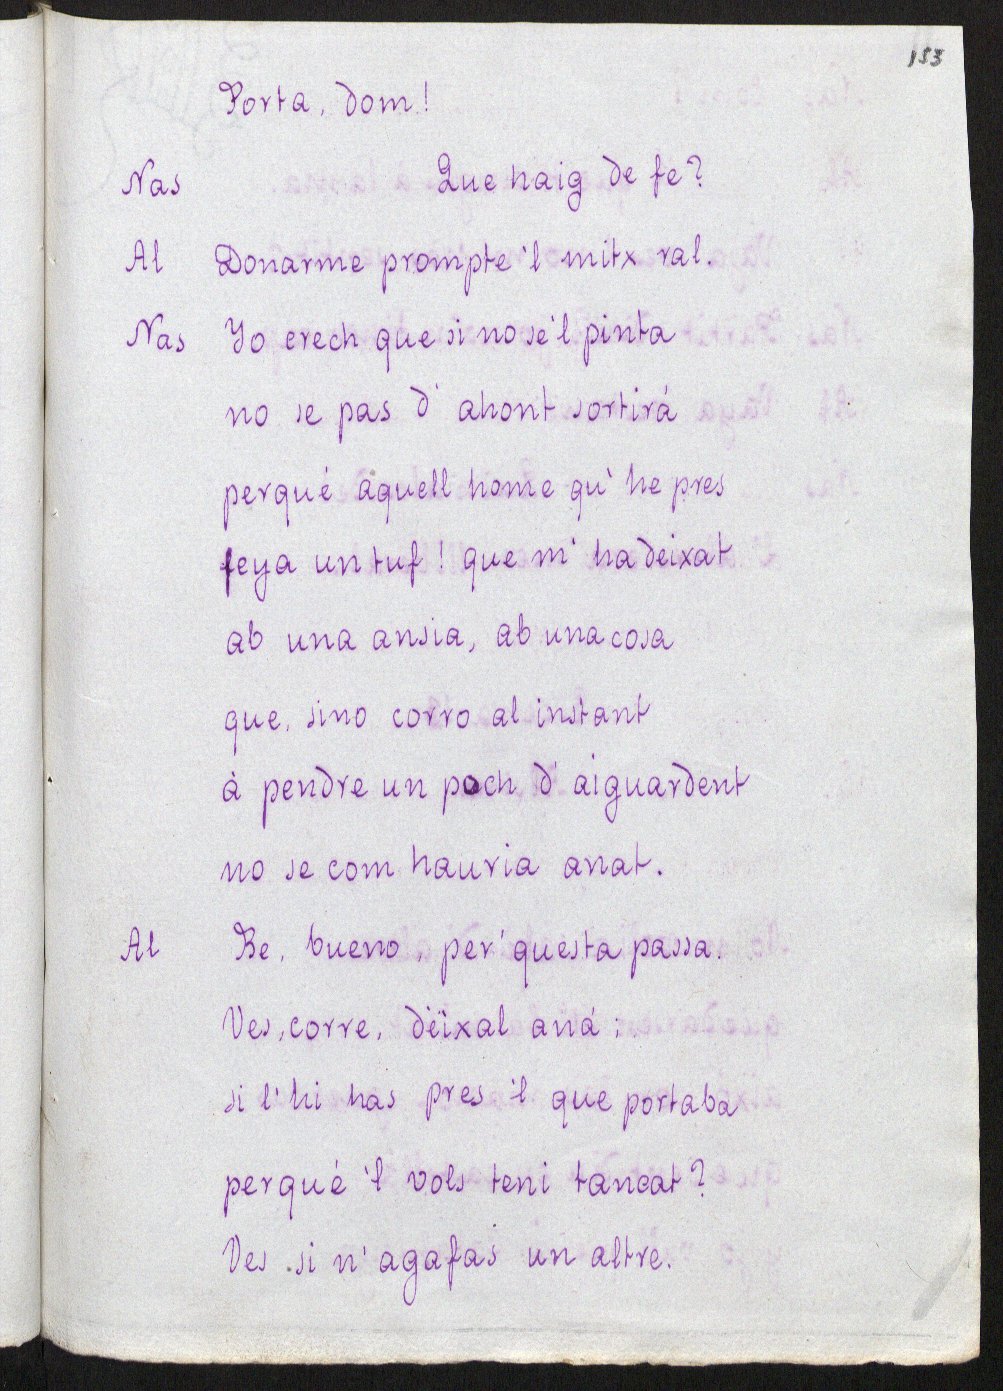 153
Porta, dom!
Nas Que haig de fe?
Al Donarme prompte 'l mitx ral.
Nas Yo crech que si no se 'l pinta
no se pas d' ahont sortirá
perqué aquell home qu' he pres
feya un tuf! que m' ha deixat
ab una ansia, ab una cosa
que, sino corro al instant
á pendre un poch d' aiguardent
no se com hauria anat.
Al Be, bueno, per 'questa passa.
Ves, corre, dèixal aná;
si l' hi has pres 'l que portaba
perqué 'l vols teni tancat?
Ves si n' agafas un altre.